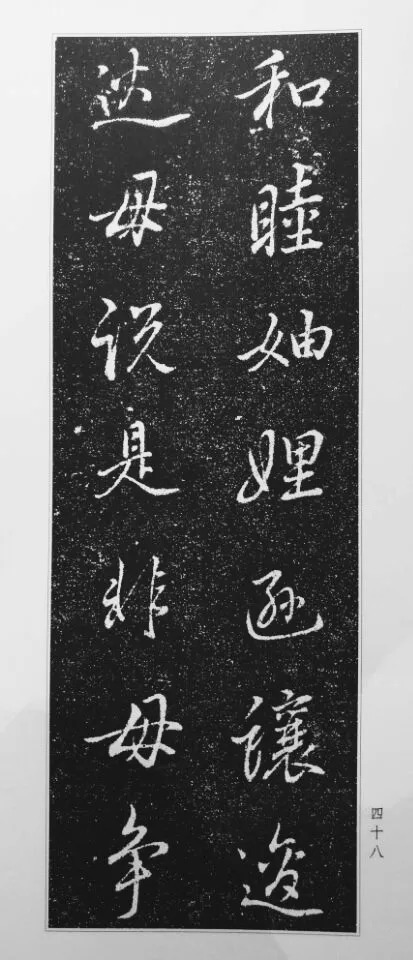 和睦妯娌遜讓逡
巡毋説是非毋争
四十八